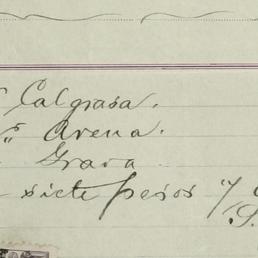 " Calgrasa.
" Arena.
Grava
siete pesos y